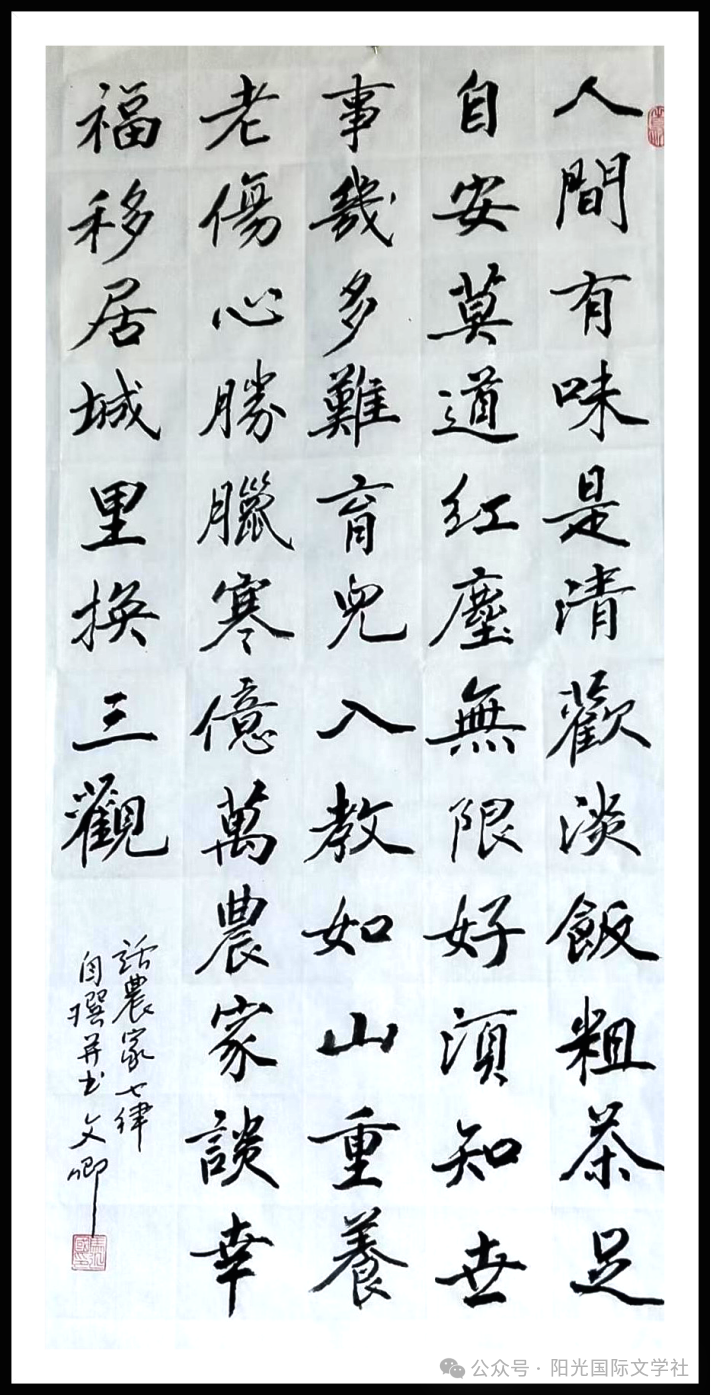 人間有味是清歡淡飯粗茶足
自安莫道紅塵無限好須知世
事幾多難育兒入教如山重養
老傷心勝臘寒億萬農家談幸
福移居城里換三觀
話農家七律
自撰并书文卿
公众号 · 阳光国际文学社